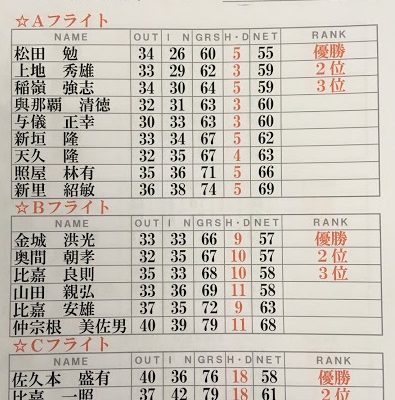 ☆Aフライト
NAME OUT I N GRS H・D NET RANK
松田 勉 34 26 60 5 55 優勝
上地 秀雄 33 29 62 3 59 2位
稲嶺 強志 34 30 64 5 59 3位
與那覇 清徳 32 31 63 3 60
与儀 正幸 30 33 63 3 60
新垣 隆 33 34 67 5 62
天久 隆 32 35 67 4 63
照屋 林有 35 36 71 5 66
新里 紹敏 36 38 74 5 69
☆Bフライト
NAME OUT I N GRS H・D NET RANK
金城 洪光 33 33 66 9 57 優勝
奥間 朝孝 32 35 67 10 57 2位
比嘉 良則 35 33 68 10 58 3位
山田 親弘 33 36 69 11 58
比嘉 安雄 37 35 72 9 63
仲宗根 美佐男 40 39 79 11 68
☆Cフライト
NAME OUT I N GRS H・D NET RANK
佐久本 盛有 40 36 76 18 58 優勝
比嘉 一照 37 42 79 18 61 2位